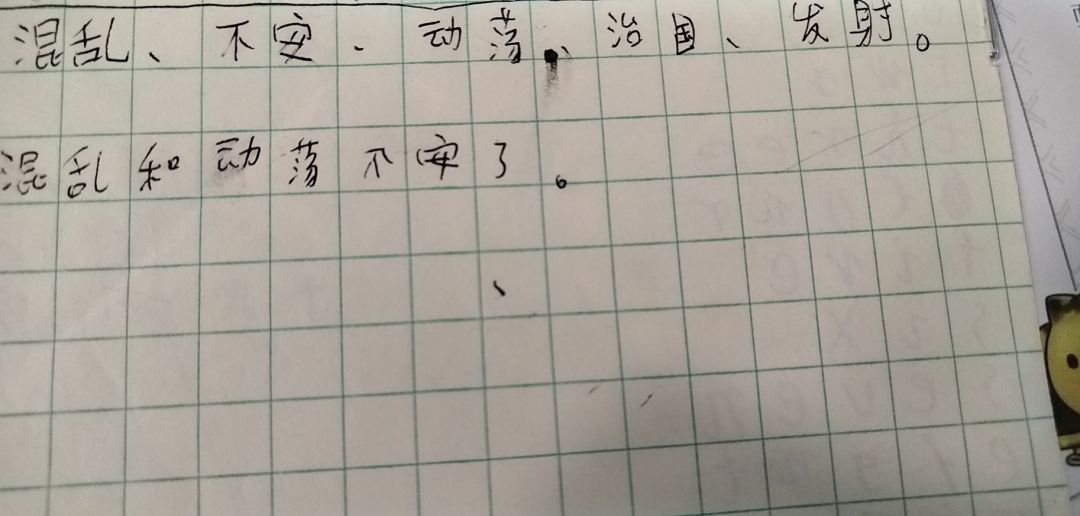 混乱、不安、动荡、治国、发射。
混乱和动荡不安了。